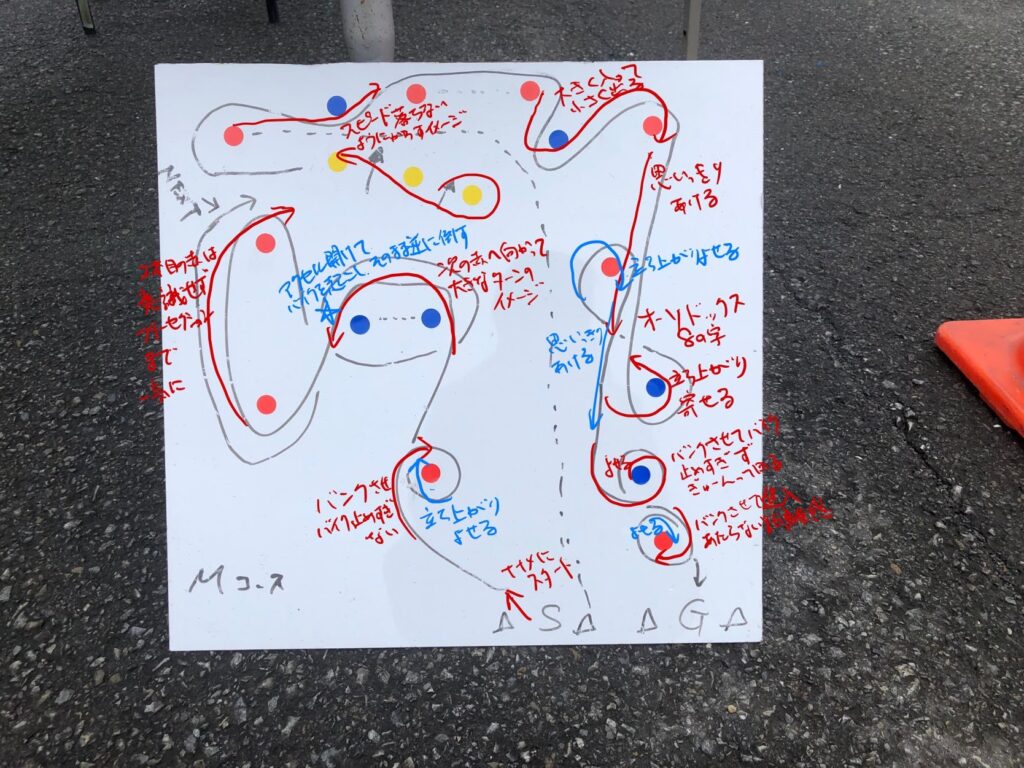 大きく入って
小さく出る
スピード落ちない
ようにかわすイメージ
思いっきり
あける
NEXT
2本目の赤は
意識せず
フリーセクション
まで
一気に
アクセル開けて
バイクを起こし、そのまま逆に倒す
次の赤へ向かって
大きなターンの
イメージ
立ち上がりよせる
オーソドックス
8の字
思いっきり
あける
立ち上がり
寄せる
バンクさせ
バイク止めすぎ
ない
立ち上がり
よせる
よせる
バンクさせてバイク
止めすぎず
ぎゅーんって回る
よせる
バンクさせて進入
あたらない
ナナメに
スタート
Mコース
S
G